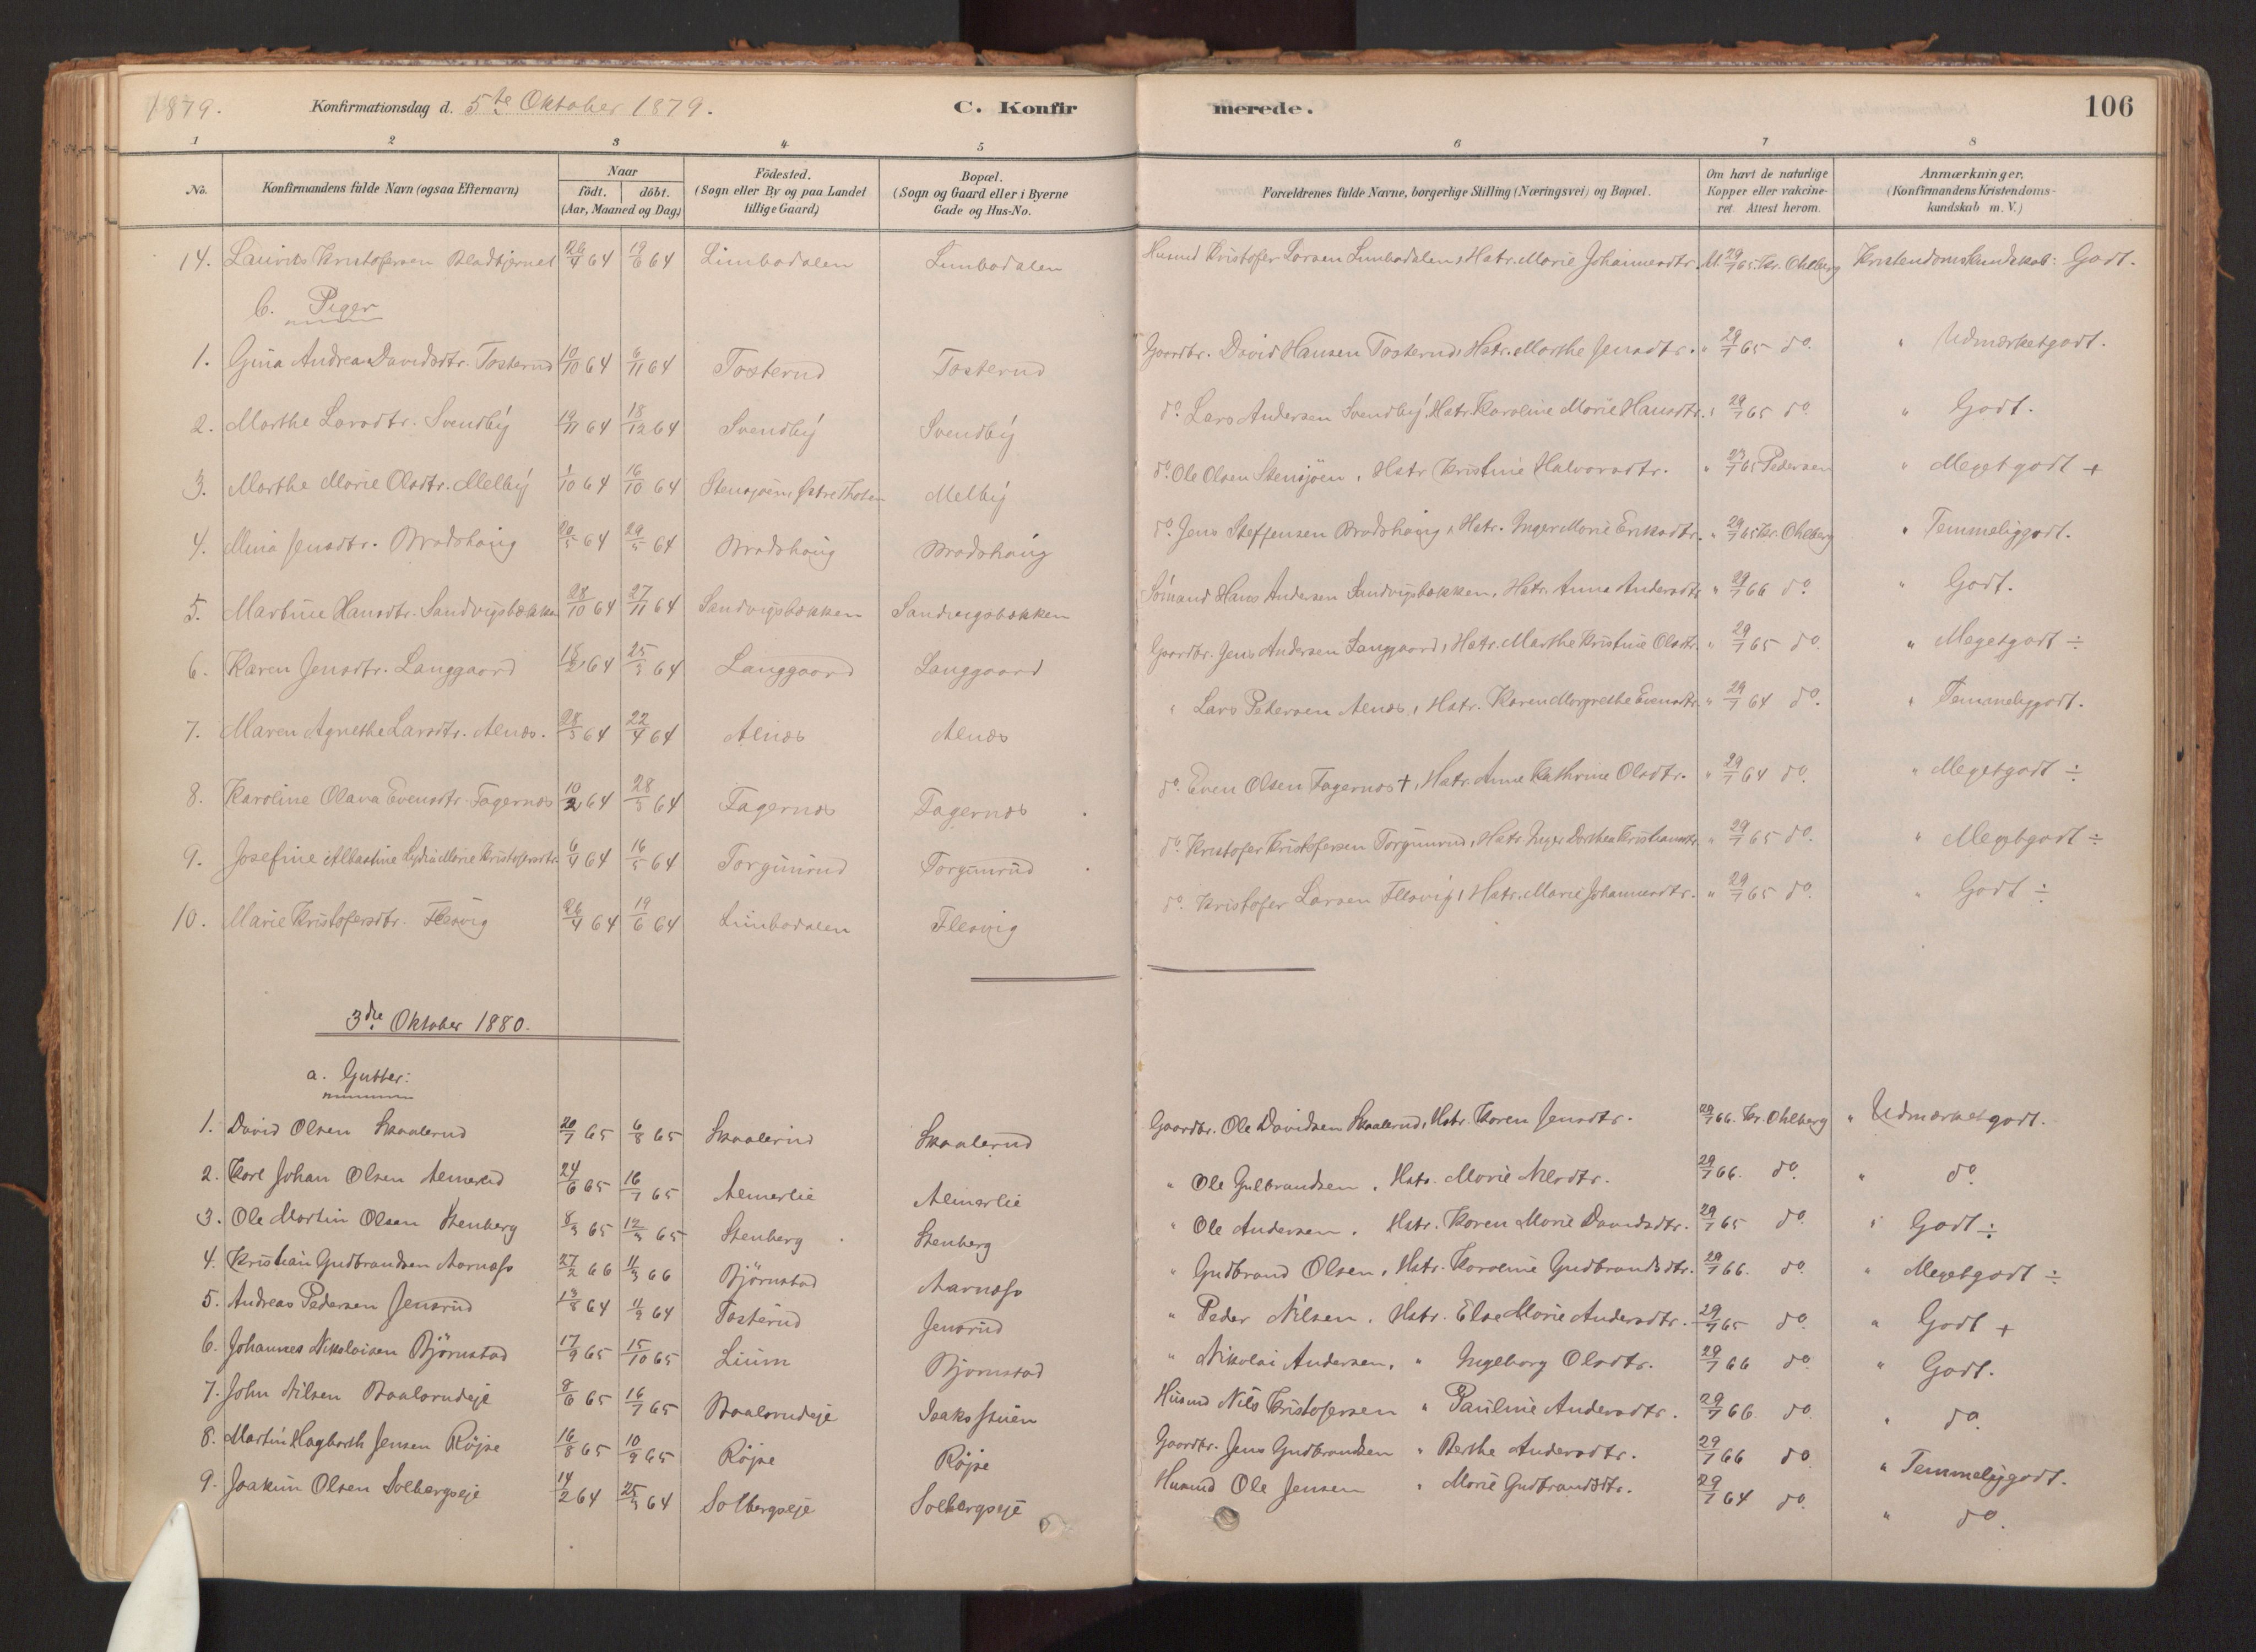 1879. Konfirmationsdag d. 5te Oktober 1879. C. Konfirmerede. 106
1 2 3 4 5 6 7 8
No. Konfirmandens fulde Navn (ogsaa Efternavn) Naar födt. döbt. (Aar, Maaned og Dag) Födested. (Sogn eller By og paa Landet tillige Gaard) Bopæl. (Sogn og Gaard eller i Byerne Gade og Hus-No. Forældrenes fulde Navne, borgerlige Stilling (Næringsvei) og Bopæl. Om havt de naturlige Kopper eller vakcineret. Attest herom. Anmærkninger. (Konfirmandens Kristendomskundskab m. V.)
14. Laurits Kristofersen 26/4 64 19/6 64 Limbodalen Limbodalen Husmd Kristofer Larsen Limbodalen, Hstr. Marie Johannesdtr. 29/7 65. Kr. Ohlberg Kristendomskundskab: Godt.
b. Piger
1. Gina Andrea Davidsdtr. Tosterud 10/10 64 6/11 64 Tosterud Tosterud Gaardbr. David Hansen Tosterud, Hstr. Marthe Jensdtr. " 29/7 65 do. " Udmærketgodt.
2. Marthe Larsdtr. Svendby 19/11 64 18/12 64 Svendby Svendby do. Lars Andersen Svendby, Hstr. Karoline Marie Hansdtr. 29/7 65 do. " Godt.
3. Marthe Marie Olsdtr. Melby 1/10 64 16/10 64 Melby do. Ole Olsen Stensjöen, Hstr Kristine Halvorsdtr. " 65 Pedersen " Meget godt +
4. Mina Jensdtr. Bradshaug 64 29/5 64 Bradshaug Bradshaug do. Jens Steffensen Bradshaug, Hstr. Inger Marie Eriksdtr. " 29/7 65 Kr. Ohlberg " Temmeliggodt.
5. Martine Hansdtr. Sandvigsbækken 28/10 64 27/11 64 Sandvigsbækken Sandvigsbækken Sömand Hans Andersen Sandvigsbækken, Hstr. Anna Andersdtr " 29/7 66 do. " Godt.
6. Karen Jensdtr. Langgaard 64 25/3 64 Langgaard Langgaard Gaardbr. Jens Andersen Langgaard, Hstr. Marthe Kristine Olsdtr. " 29/7 65 do. " Megetgodt ÷
7. Maren Agnethe Larsdtr. Alnæs. 28/3 64 22/4 64 Alnæs Alnæs " Lars Pedersen Alnæs, Hstr. Karen Margrethe Evensdtr. " 29/7 64 do. " Temmeliggodt.
8. Karoline Olava Evensdtr. Fagernæs 10/2 64 28/3 64 Fagernæs Fagernæs do. Even Olsen Fagernæs †, Hstr. Anne Kathrine Olsdtr. " 29/7 64 do. " Megetgodt ÷
9. Josefine Albastine Lydia Marie Kristofersdtr. 6/4 64 16/5 64 Torgunrud Torgunrud do. Kristofer Kristofersen Torgunrud, Hstr. Inger Dorthea Kristiansdtr. " 29/7 65 do. " Megetgodt ÷
10. Marie Kristofersdtr. Flesvig 26/4 64 19/6 64 Limbodalen Flesvig do. Kristofer Larsen Flesvig, Hstr. Marie Johannesdtr. " 29/7 65 do. " Godt ÷
3die Oktober 1880.
a. Gutter:
1. David Olsen Skaalerud 20/7 65 6/8 65 Skaalerud Skaalerud Gaardbr. Ole Davidsen Skaalerud, Hstr. Karen Jensdtr. 29/7 66. Kr. Ohlberg " Udmærketgodt.
2. Karl Johan Olsen 24/6 65 16/7 65 Almerlie Almerlie " Ole Gulbrandsen, Hstr. Marie Nilsdtr. 29/7 66. do. " do.
3. Ole Martin Olsen Stenberg 8/3 65 12/3 65 Stenberg Stenberg " Ole Andersen, Hstr. Karen Marie Davidsdtr. 29/7 65 do. " Godt ÷
4. Kristian Gudbrandsen Aarnæss 27/2 66 11/3 66 Björnstad Aarnæss " Gudbrand Olsen, Hstr. Karoline Gudbrandsdtr. 29/7 66. do. " Megetgodt ÷
5. Andreas Pedersen Jensrud 64 11/9 64 Tosterud Jensrud " Peder Nilsen, Hstr. Else Marie Andersdtr. 29/7 65 do. " Godt +
6. Johannes Nikolaisen Björnstad 17/9 65 15/10 65 Lium Björnstad " Nikolai Andersen, " Ingeborg Olsdtr. 29/7 66 do. " Godt.
7. John Nilsen Baalsrudeje 8/6 65 16/7 65 Baalsrudeje Husmd Nils Kristofersen " Pauline Andersdtr. 29/7 66. do. " do.
8. Martin Hagbarth Jensen Röjse 16/8 65 10/9 65 Röjse Röjse Gaardbr. Jens Gudbrandsen " Berthe Andersdtr. 29/7 66 do " Temmeliggodt.
9. Joakim Olsen Solbergseje 14/2 64 25/3 64 Solbergseje Solbergseje Husmd Ole Jensen " Marie Gudbrandsdtr. 29/7 64 do. " do.